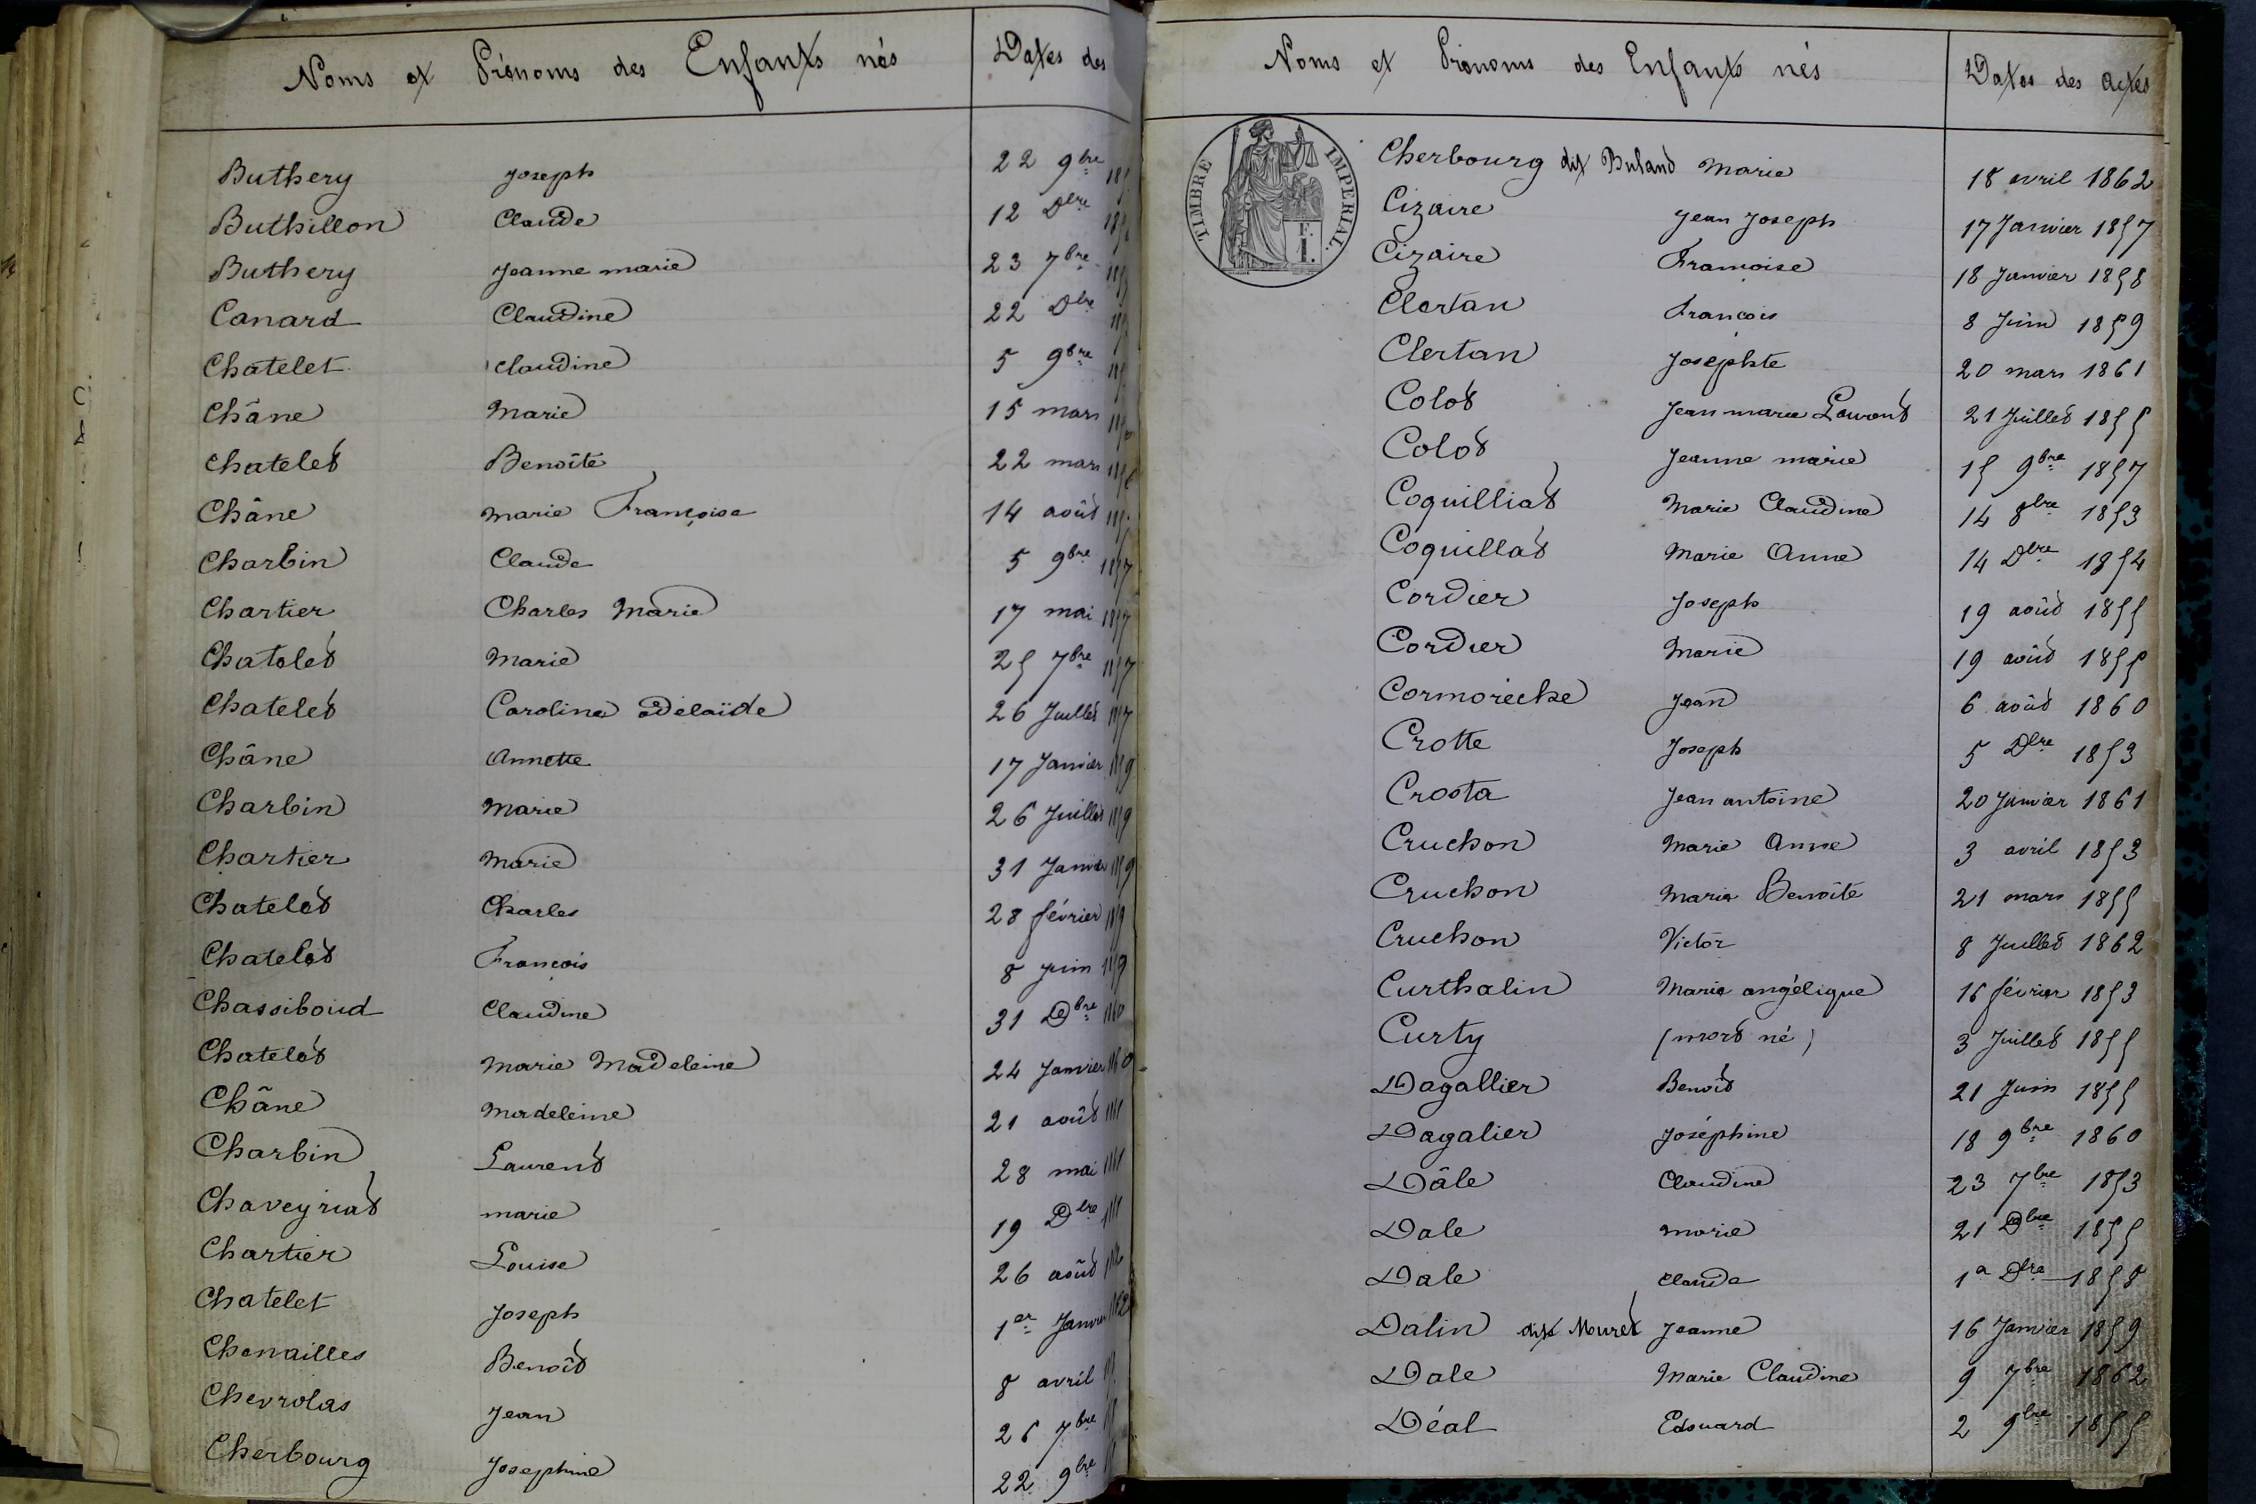 Noms et Prénoms des Enfants nés Dates des
Buthery Joseph 22 9bre
Buthillon Claude 12 Dbre
Buthery Jeanne marie 23 7bre
Canard Claudine 22 Dbre
Chatelet Claudine 5 9bre
Châne Marie 15 mars
Chatelet Benoîte 22 mars
Châne Marie Françoise 14 août
Charbin Claude 5 9bre 1857
Chartier Charles Marie 17 mai 1857
Chatelet Marie 25 7bre 1857
Chatelet Caroline adelaïde 26 Juillet 1857
Châne Annette 17 Janvier 1859
Charbin Marie 26 Juillet 1859
Chartier Marie 31 Janvier 1859
Chatelet Charles 28 février 1859
Chatelet François 8 Juin 1859
Chassiboud Claudine 31 Dbre 1860
Chatelet Marie Madeleine 24 Janvier 1860
Châne Madeleine 21 août
Charbin Laurent 28 mai
Chaveyriat marie 19 Dbre
Chartier Louise 26 août
Chatelet Joseph 1er Janvier 1862
Chenailles Benoît 8 avril
Chevrolas Jean 26 7bre
Cherbourg Josephine 22 9bre
Noms et Prénoms des Enfants nés Dates des actes
TIMBRE IMPERIAL.
F.
1.
Cherbourg dit Buland Marie 18 avril 1862
Cizaire Jean Joseph 17 Janvier 1857
Cizaire Françoise 18 Janvier 1858
Clertan François 8 Juin 1859
Clertan Josephte 20 mars 1861
Colot Jean marie Laurent 21 Juillet 1855
Colot Jeanne marie 15 9bre 1857
Coquilliat Marie Claudine 14 8bre 1853
Coquillat Marie Anne 14 Dbre 1854
Cordier Joseph 19 août 1855
Cordier Marie 19 août 1855
Cormorèche Jean 6 août 1860
Crotte Joseph 5 Dbre 1853
Crosta Jean antoine 20 Janvier 1861
Cruchon Marie Anne 3 avril 1853
Cruchon Marie Benoîte 21 mars 1855
Cruchon Victor 8 Juillet 1862
Curthalin Marie angélique 16 février 1853
Curty (mort né) 3 Juillet 1855
Dagallier Benoît 21 Juin 1855
Dagalier Joséphine 18 9bre 1860
Dâle Claudine 23 7bre 1853
Dale marie 21 Dbre 1855
Dale Claude 1er Dbre 1858
Dalin dit Mouret Jeanne 16 Janvier 1859
Dale Marie Claudine 9 7bre 1862
Déal Edouard 2 9bre 1855